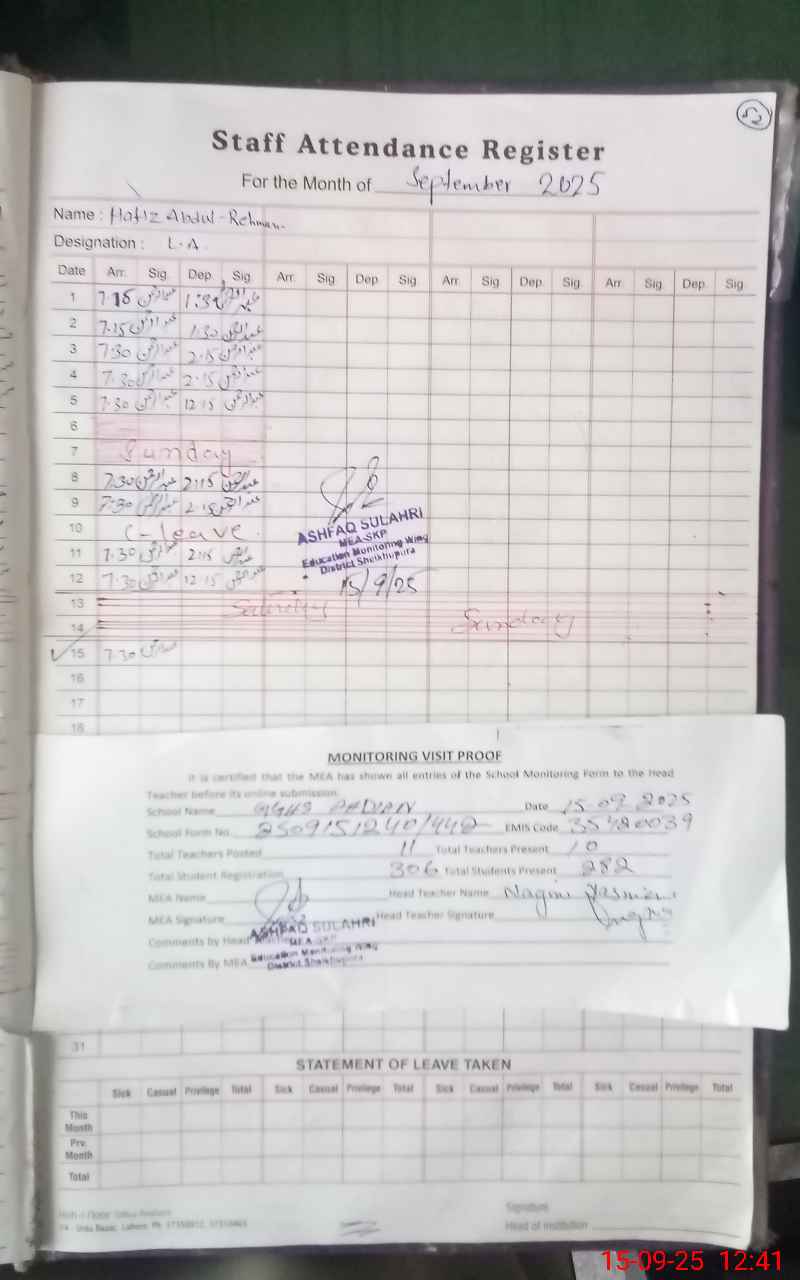 52
Staff Attendance Register
For the Month of September 2025
Name : Hafiz Abdul-Rehman.
Designation : L.A
Date Arr. Sig. Dep. Sig. Arr. Sig. Dep. Sig. Arr. Sig. Dep. Sig. Arr. Sig. Dep. Sig.
1 7.15 عبدالرحمن 1:30 عبدالرحمن
2 7.15 عبدالرحمن 1:30 عبدالرحمن
3 7:30 عبدالرحمن 2.15 عبدالرحمن
4 7.30 عبدالرحمن 2.15 عبدالرحمن
5 7.30 عبدالرحمن 12.15 عبدالرحمن
6
7 Sunday
8 7.30 عبدالرحمن 2:15 عبدالرحمن
9 7:30 عبدالرحمن 2.15 عبدالرحمن
10 C-leave.
11 7.30 عبدالرحمن 2:15 عبدالرحمن
12 7.30 عبدالرحمن 12.15 عبدالرحمن
ASHFAQ SULAHRI
MEA-SKP
Education Monitoring Wing
District Sheikhupura
15/9/25
13 Saturday
14 Sunday
15 7.30 عبدالرحمن
16
17
18
MONITORING VISIT PROOF
It is certified that the MEA has shown all entries of the School Monitoring Form to the Head
Teacher before its online submission.
School Name GGHS Date 15-09-2025
School Form No. EMIS Code 35420039
Total Teachers Posted 11 Total Teachers Present 10
Total Student Registration 306 Total Students Present 282
MEA Name Head Teacher Name
MEA Signature Head Teacher Signature
Comments by Head
Comments By MEA
ASHFAQ SULAHRI
MEA-SKP
Education Monitoring Wing
District Sheikhupura
31
STATEMENT OF LEAVE TAKEN
Sick Casual Privilege Total Sick Casual Privilege Total Sick Casual Privilege Total Sick Casual Privilege Total
This Month
Prv. Month
Total
Signature
Urdu Bazar, Lahore. Ph:
Head of Institution
15-09-25 12:41